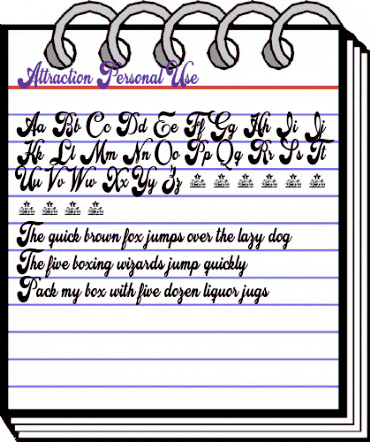 Attraction Personal Use
Aa Bb Cc Dd Ee Ff Gg Hh Ii Jj
Kk Ll Mm Nn Oo Pp Qq Rr Ss Tt
Uu Vv Ww Xx Yy Zz
The quick brown fox jumps over the lazy dog
The five boxing wizards jump quickly
Pack my box with five dozen liquor jugs